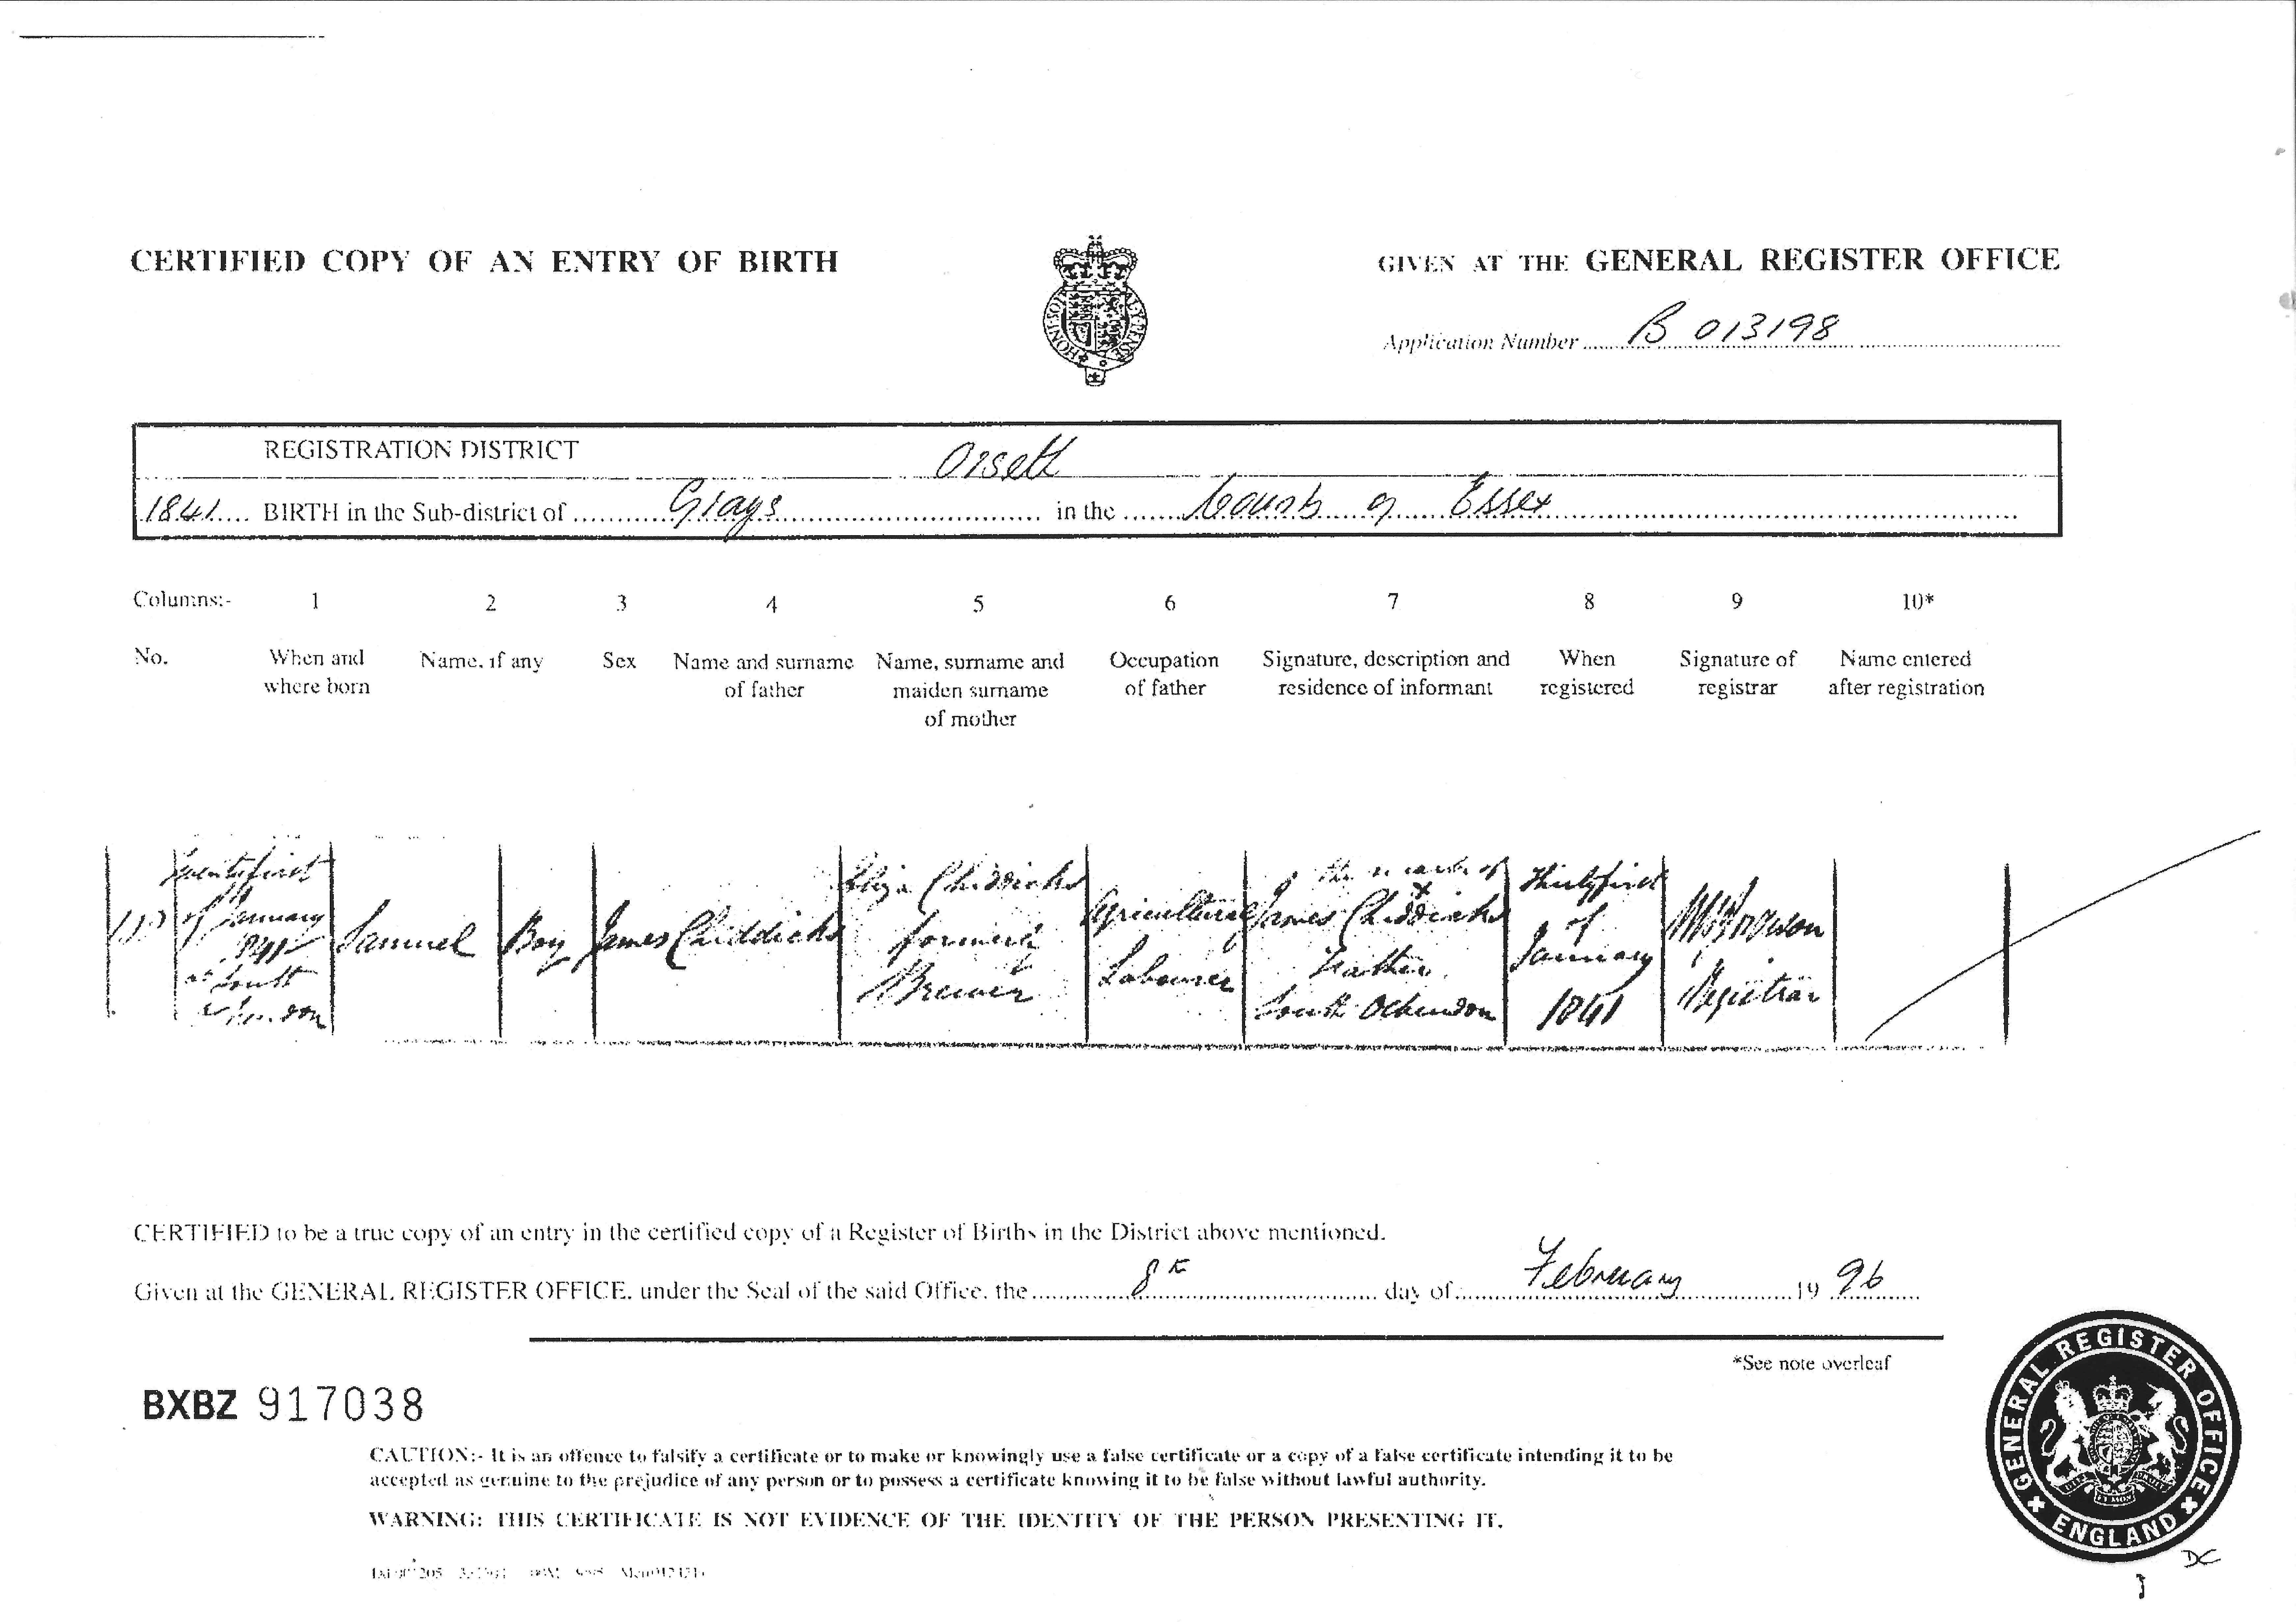 CERTIFIED COPY OF AN ENTRY OF BIRTH
GIVEN AT THE GENERAL REGISTER OFFICE
Application Number B 013198
REGISTRATION DISTRICT Orsett
1841 BIRTH in the Sub-district of Grays in the County of Essex
Columns:- 1 2 3 4 5 6 7 8 9 10*
No. When and where born
Name, if any
Sex
Name and surname of father
Name, surname and maiden surname of mother
Occupation of father
Signature, description and residence of informant
When registered
Signature of registrar
Name entered after registration
Twentyfirst
of January
1841
at South
Ockendon
Samuel
Boy
James Chiddicks
Eliza Chiddicks
formerly
Brewer
Agricultural
Labourer
The mark of
X
James Chiddicks
Father
South Ockendon
Thirtyfirst
of
January
1841
Registrar
CERTIFIED to be a true copy of an entry in the certified copy of a Register of Births in the District above mentioned.
Given at the GENERAL REGISTER OFFICE, under the Seal of the said Office, the 8th day of February 19 96
*See note overleaf
BXBZ 917038
CAUTION:- It is an offence to falsify a certificate or to make or knowingly use a false certificate or a copy of a false certificate intending it to be
accepted as genuine to the prejudice of any person or to possess a certificate knowing it to be false without lawful authority.
WARNING: THIS CERTIFICATE IS NOT EVIDENCE OF THE IDENTITY OF THE PERSON PRESENTING IT.
GENERAL REGISTER OFFICE
ENGLAND
DC